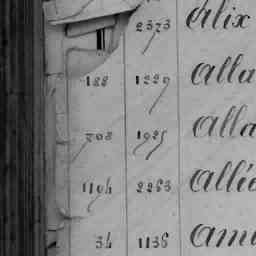 2373 Alix
188 1229 Alla
708 1925 Alla
1104 2263 Alli
34 1136 Am